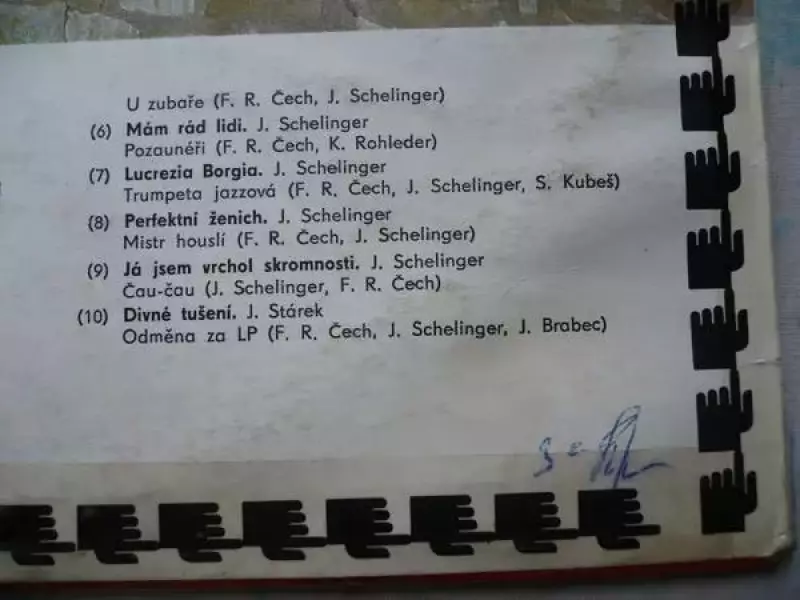 U zubaře (F. R. Čech, J. Schelinger)
(6) Mám rád lidi. J. Schelinger
Pozaunéři (F. R. Čech, K. Rohleder)
(7) Lucrezia Borgia. J. Schelinger
Trumpeta jazzová (F. R. Čech, J. Schelinger, S. Kubeš)
(8) Perfektní ženich. J. Schelinger
Mistr houslí (F. R. Čech, J. Schelinger)
(9) Já jsem vrchol skromnosti. J. Schelinger
Čau-čau (J. Schelinger, F. R. Čech)
(10) Divné tušení. J. Stárek
Odměna za LP (F. R. Čech, J. Schelinger, J. Brabec)